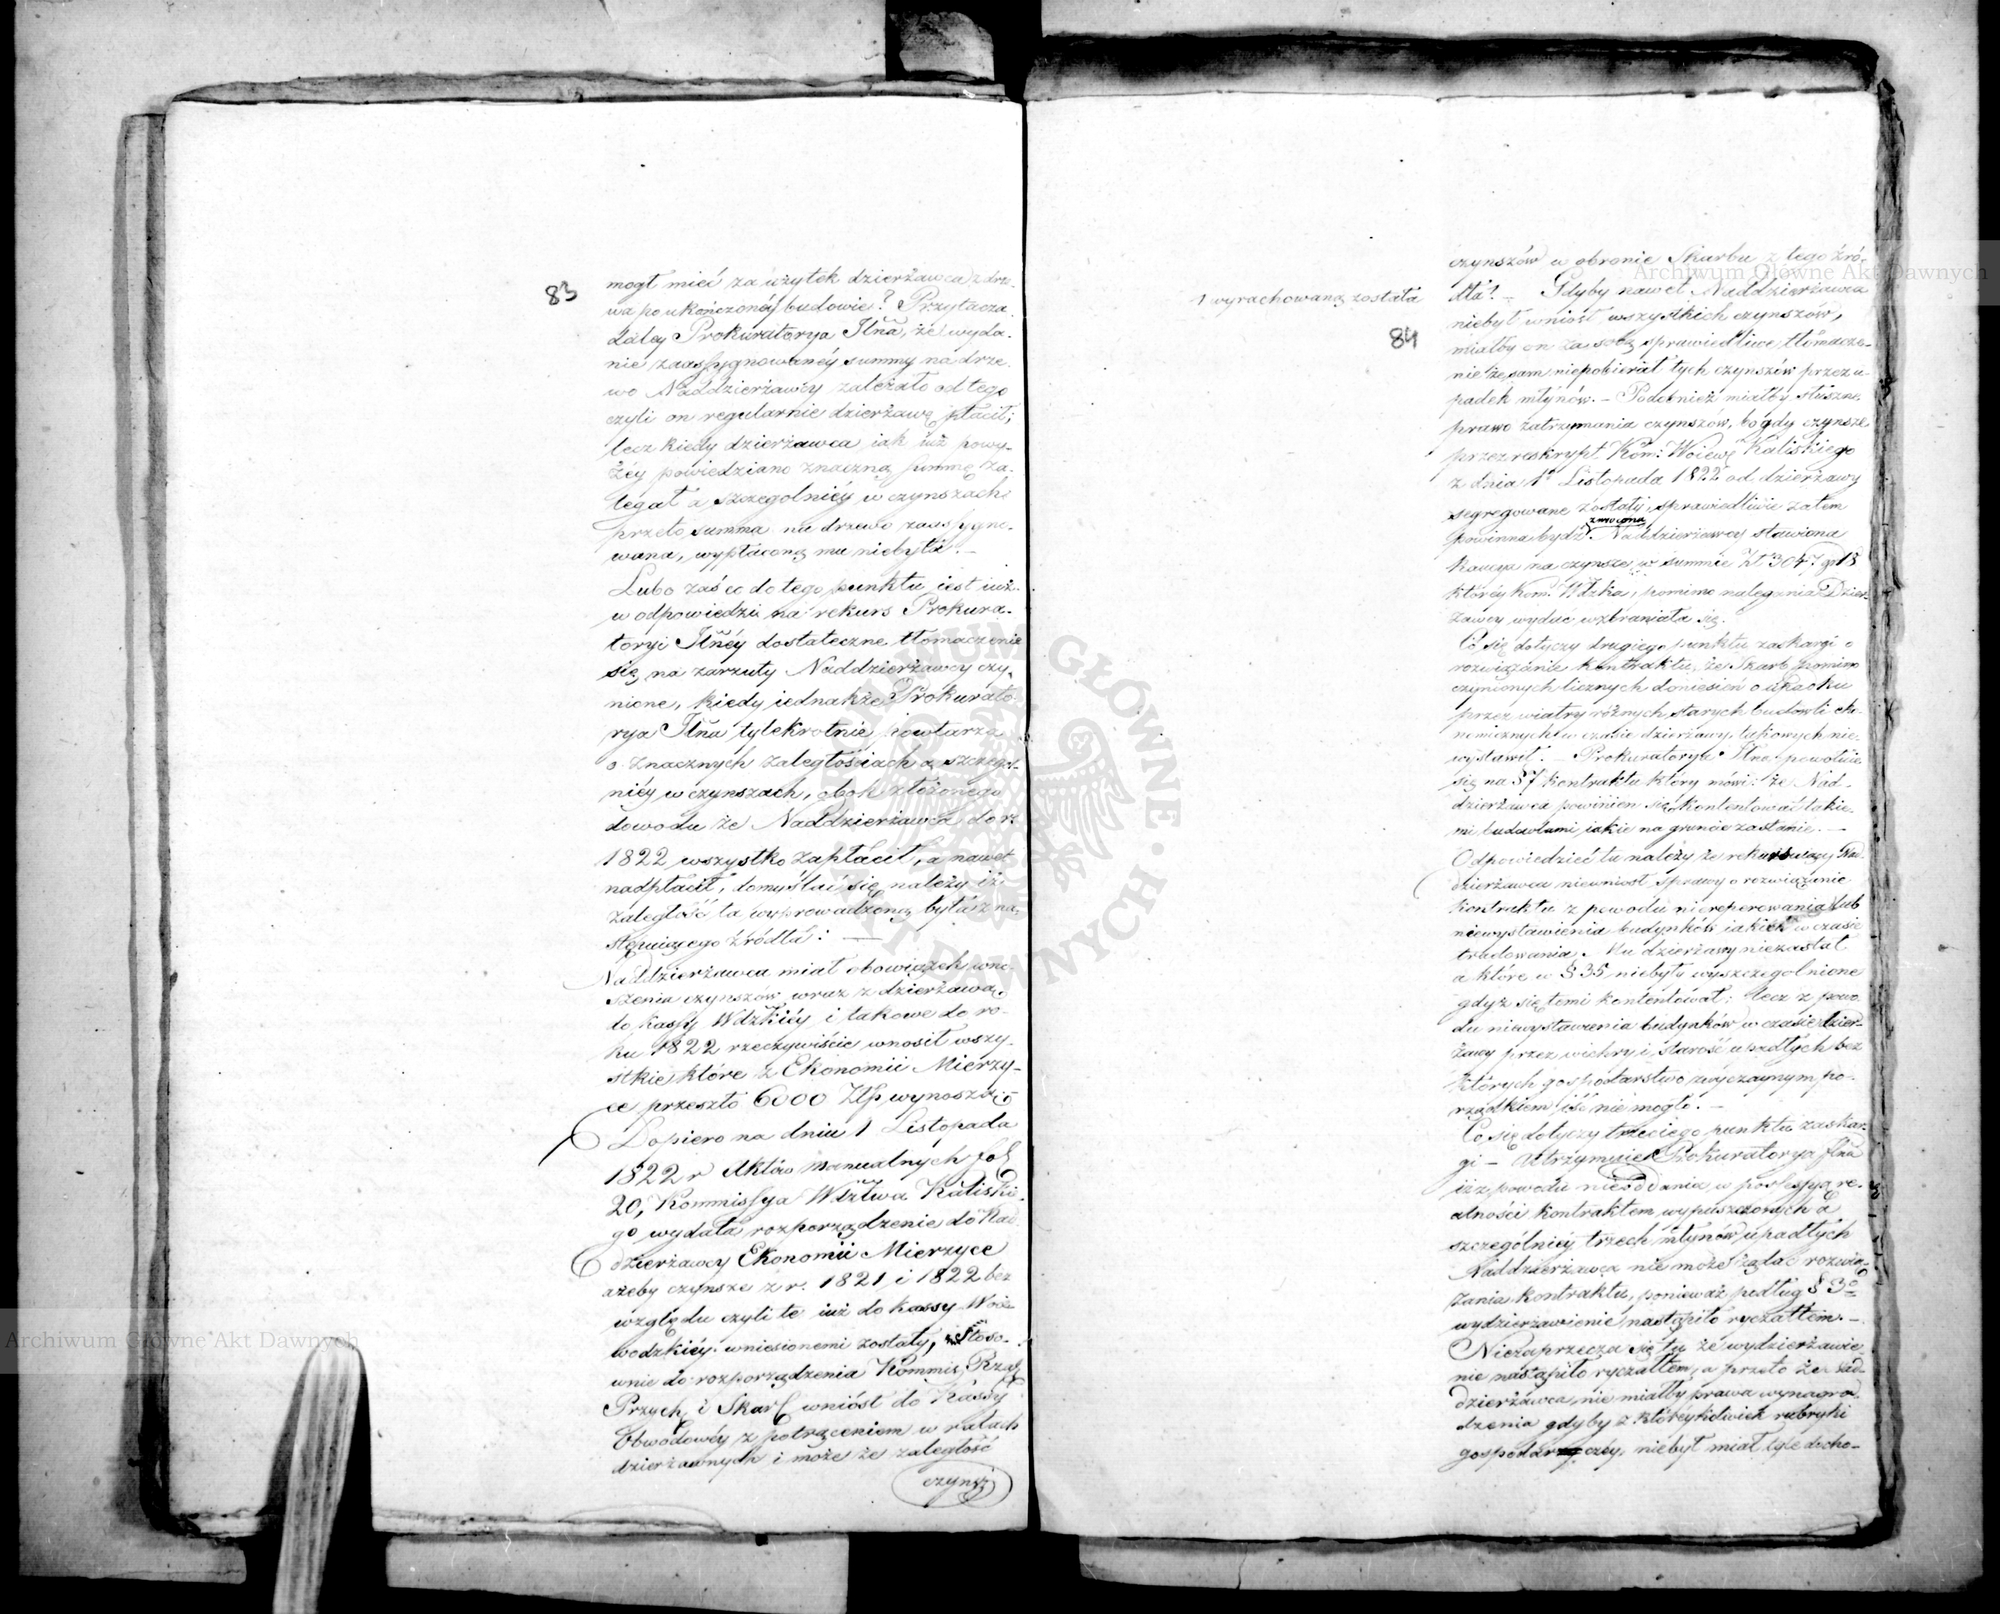 83
mogł mieć za użytek dzierżawca z drze-
wa po ukończonéy budowie? Przytacza
daléy Prokuratorya Jlna, że wyda-
nie zaassygnowanéy summy na drze-
wo Naddzierżawcy zależało od tego
czyli on regularnie dzierżawę płacił;
lecz kiedy dzierżawca iak iuż powy-
żéy powiedziano znaczną summę za-
legał a szczegolniéy w czynszach
przeto summa na drzewo zaassygno-
wana, wypłaconą mu niebyła. —
Lubo zaś co do tego punktu iest iuż
w odpowiedzi na rekurs Prokura-
toryi Jlnéy dostateczne tłomaczenie
się na zarzuty Naddzierżawcy czy-
nione, kiedy iednakże Prokurato-
rya Jlna tylekrotnie powtarza
o znacznych zaległościach a szczegol-
niéy w czynszach, obok złożonego
dowodu że Naddzierżawca do r.
1822 wszystko zapłacił, a nawet
nadpłacił, domyślać się należy iż
zaległość ta wyprowadzoną była z na-
stępuiącego źródła: —
Naddzierżawca miał obowiązek wno-
szenia czynszów wraz z dzierżawą
do kassy Wdzkiéy i takowe do ro-
ku 1822 rzeczywiście wnosił wszy-
stkie które z Ekonomii Mierzy-
ce przeszło 6000 Złp wynoszą.
Dopiero na dniu 1 Listopada
1822 r Aktów manualnych fol
20, Kommissya Wdztwa Kaliskie-
go wydała rozporządzenie do Nad-
dzierżawcy Ekonomii Mierzyce
ażeby czynsze z r. 1821 i 1822 bez
względu czyli te iuż do kassy Woie-
wodzkiéy wniesionemi zostały, stoso-
wnie do rozporządzenia Kommis: Rząd:
Przych: i Skar: wniósł do Kassy
Obwodowéy z potrąceniem w ratach
dzierżawnych i może że zaległość
czynsz
1 wyrachowaną została
84
czynszów w obronie Skarbu z tego źró-
dła! — Gdyby nawet Naddzierżawca
niebył wniósł wszystkich czynszów,
miałby on za sobą sprawiedliwe tłomacze-
nie że sam niepobierał tych czynszów przez u-
padek młynów. — Podobnież miałby słuszne
prawo zatrzymania czynszów, bo gdy czynsze
przez reskrypt Kom: Woiew: Kaliskiego
z dnia 1º Listopada 1822 od dzierżawy
segregowane zostały, sprawiedliwie zatem
zwroconą
powinna bydź Naddzierżawcy stawiona
kaucya na czynsze w summie Zł 3047 gr 15
któréy Kom: Wdzka, pomimo nalegania Dzier-
żawcy wydać wzbraniała się.
Co się dotyczy drugiego punktu zaskargi o
rozwiązanie kontraktu, że Skarb pomimo
czynionych licznych doniesień o upadku
przez wiatry różnych starych budowli eko-
nomicznych w czasie dzierżawy, takowych nie-
wystawił. — Prokuratorya Jlna powołuie
się na § 7 kontraktu który mówi: że Nad-
dzierżawca powinien się kontentować takie-
mi budowlami iakie na gruncie zastanie. —
Odpowiedzieć tu należy że rekursuiący Nad-
dzierżawca niewniosł sprawy o rozwiązanie
kontraktu z powodu niereperowania lub
niewystawienia budynków iakich w czasie
tradowania Mu dzierżawy niezastał
a które w § 35 niebyły wyszczegolnione
gdyż się temi kontentował; lecz z powo-
du niewystawienia budynków w czasie dzier-
żawy przez wichry i starość upadłych bez
których gospodarstwo zwyczaynym po-
rządkiem iść nie mogło. —
Co się dotyczy trzeciego punktu zaskar-
gi — Utrzymuie Prokuratorya Jlna
iż z powodu nieoddania w possessyą re-
alności kontraktem wypuszczonych a
szczególniéy trzech młynów upadłych
Naddzierżawca nie może żądać rozwią-
zania kontraktu, ponieważ podług § 3º
wydzierżawienie nastąpiło ryczałtem. —
Niezaprzecza się tu że wydzierżawie-
nie nastąpiło ryczałtem, a przeto że Nad-
dzierżawca nie miałby prawa wynagro-
dzenia gdyby z któréykolwiek rubryki
gospodarczéy niebył miał tyle docho-
Archiwum Główne Akt Dawnych
Archiwum Główne Akt Dawnych